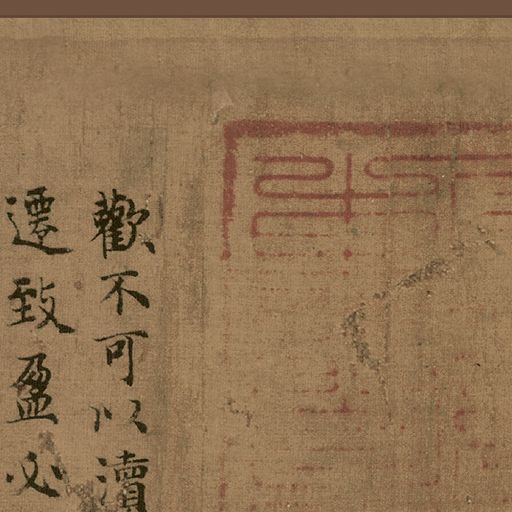 歡不可以瀆
遷致盈必